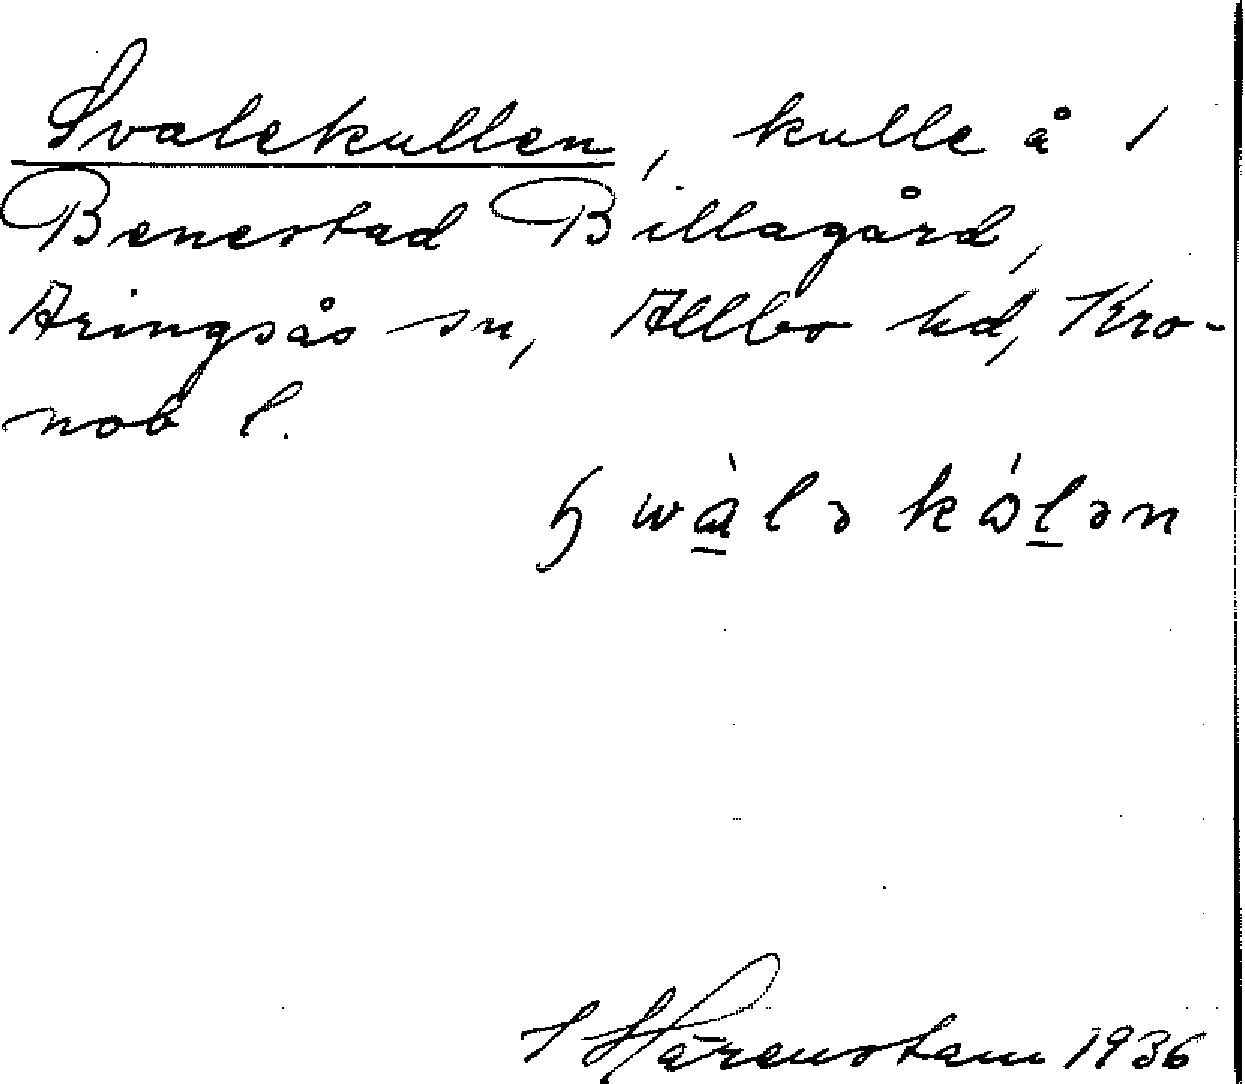 Svalekullen, kulle å 1
Benestad Billagård,
Aringsås sn, Allbo hd, Kro-
nob l.
wàlə kólən
Härenstam 1936